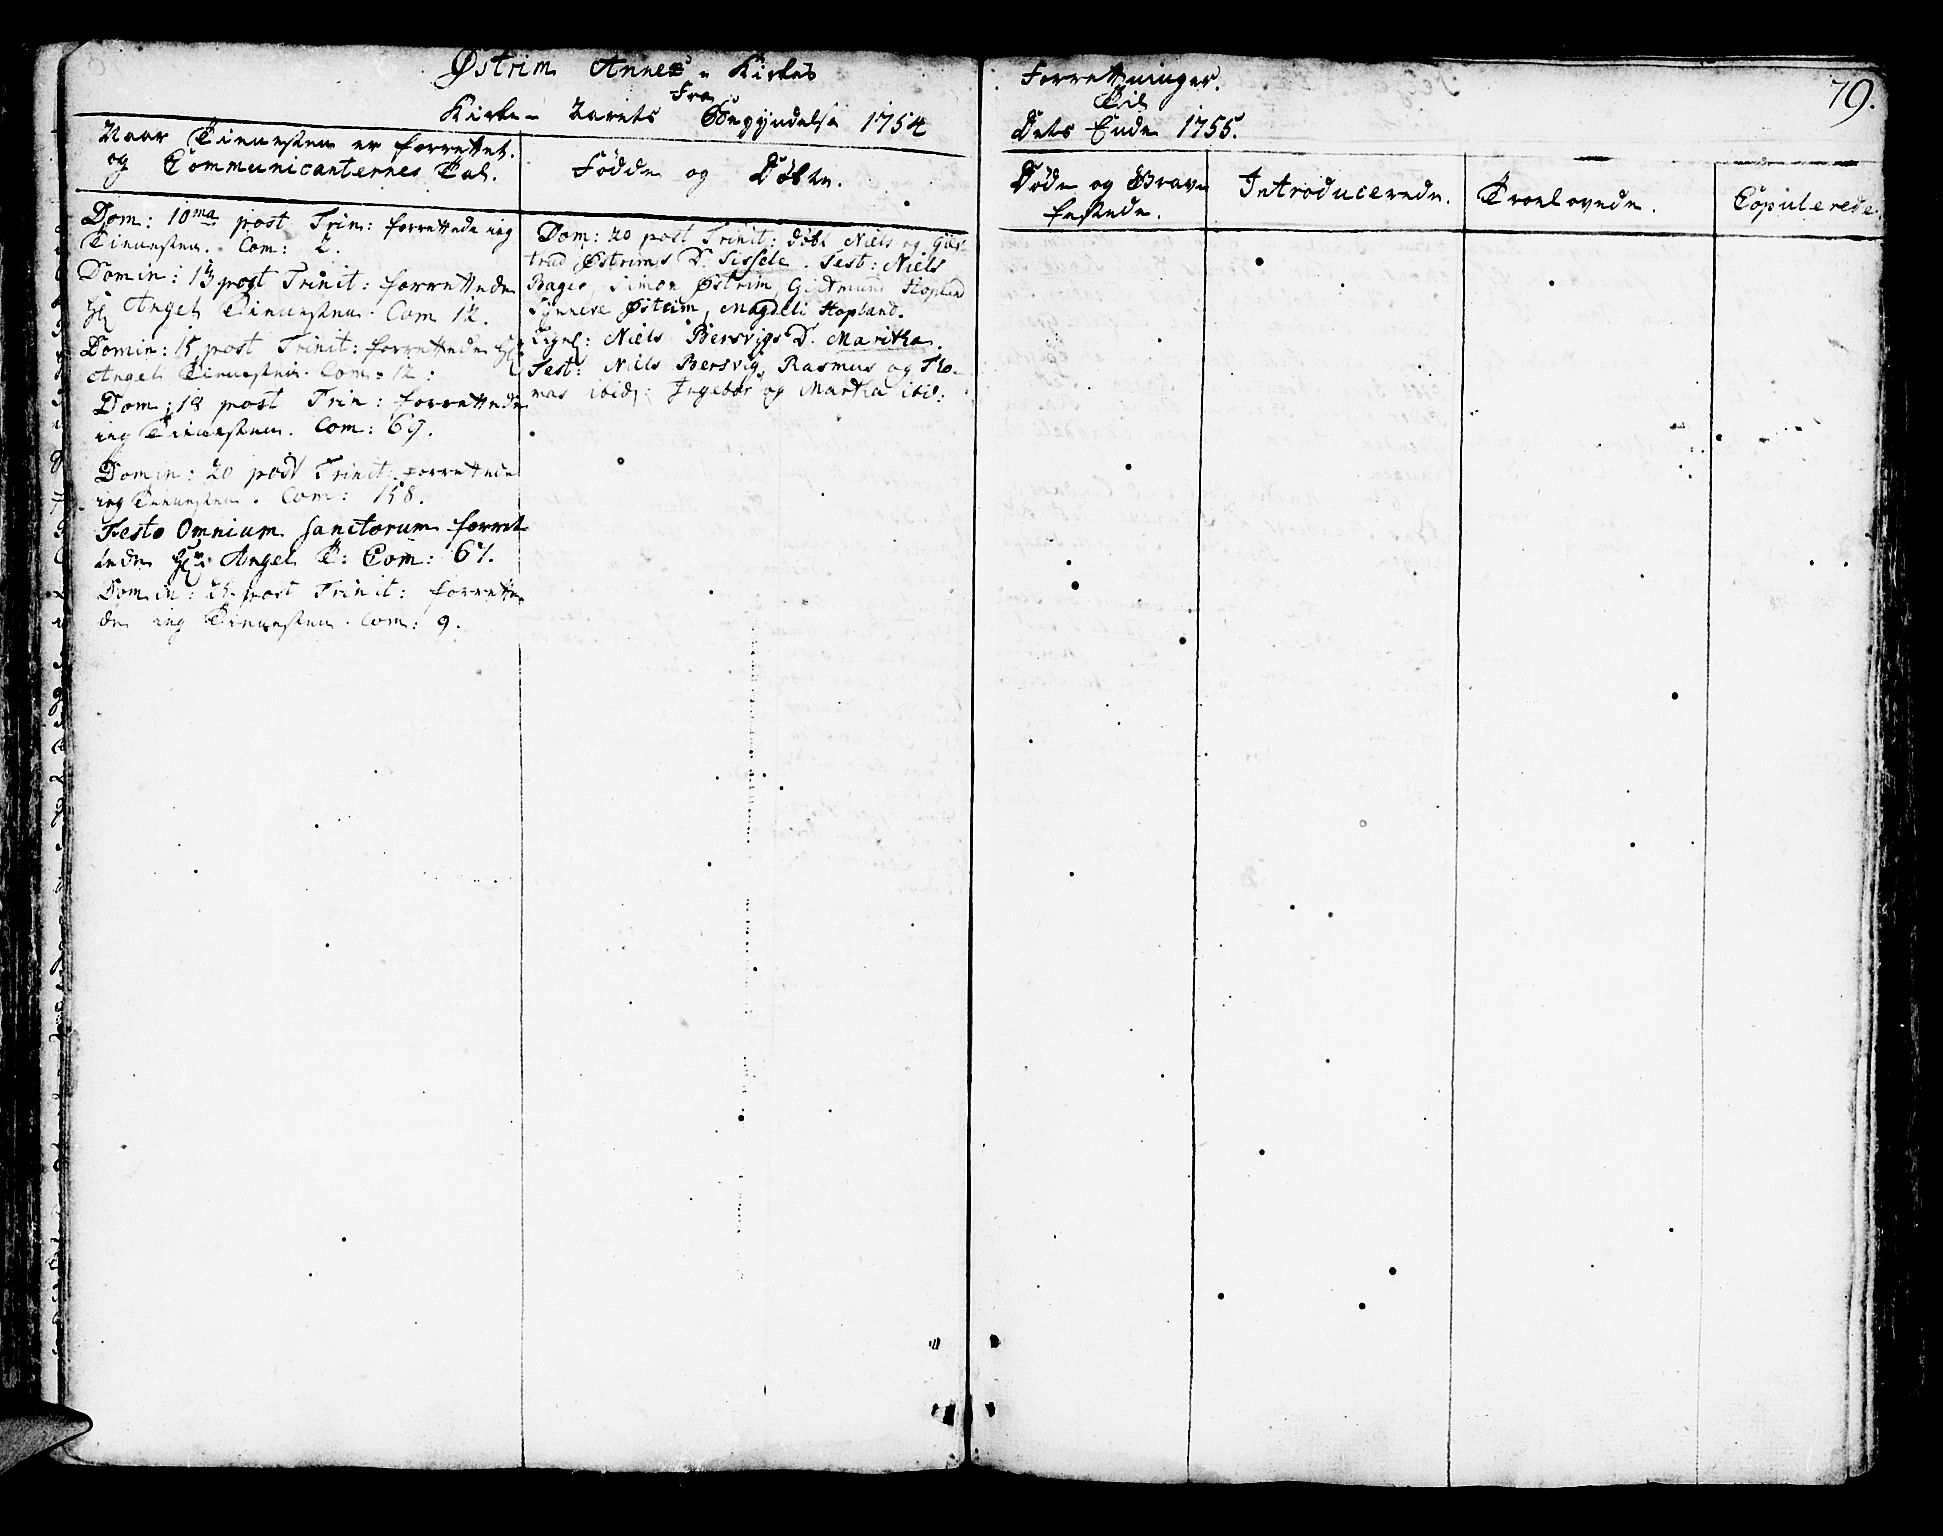 Østrim Annex - Kirkes
Forretninger.
79.
Fra
Kirke- Aarets Begyndelse 1754
Til
Dets Ende 1755.
Naar Tienesten er forrettet.
og Communicanternes Tal.
Fødde og Døbte.
Døde og Grav-
festede.
Introducerede.
Troelovede.
Copulerede.
Dom: 10ma post Trin: forrettede ieg
Tienesten. Com: 2.
Domin: 13 post Trinit: forrettede
Hr Angel Tienesten. Com 12.
Domin: 15 post Trinit: forrettede Hr
Angel Tienesten. Com: 12:
Dom: 18 post Trin: forrettede
ieg Tienesten. Com: 69.
Domin: 20 post Trinit: forrettede
ieg Tienesten. Com: 158.
Festo Omnium Sanctorum forret-
tede Hr: Angel T: Com: 67.
Domin: 25 post Trinit: forrette-
de ieg Tienesten. Com: 9.
Dom: 20 post Trinit: døbt Niels og
trud Østrims D. Sissele. Test: Niels
Bager, Simon Østrim, Gudmund Hopland
Synneve Østrim, Magdeli Hopland.
Ligel: Niels Bersvigs D. Maritha.
Test: Niels Bersvig, Rasmus og Tho-
mas ibid: Ingebor og Martha ibid: